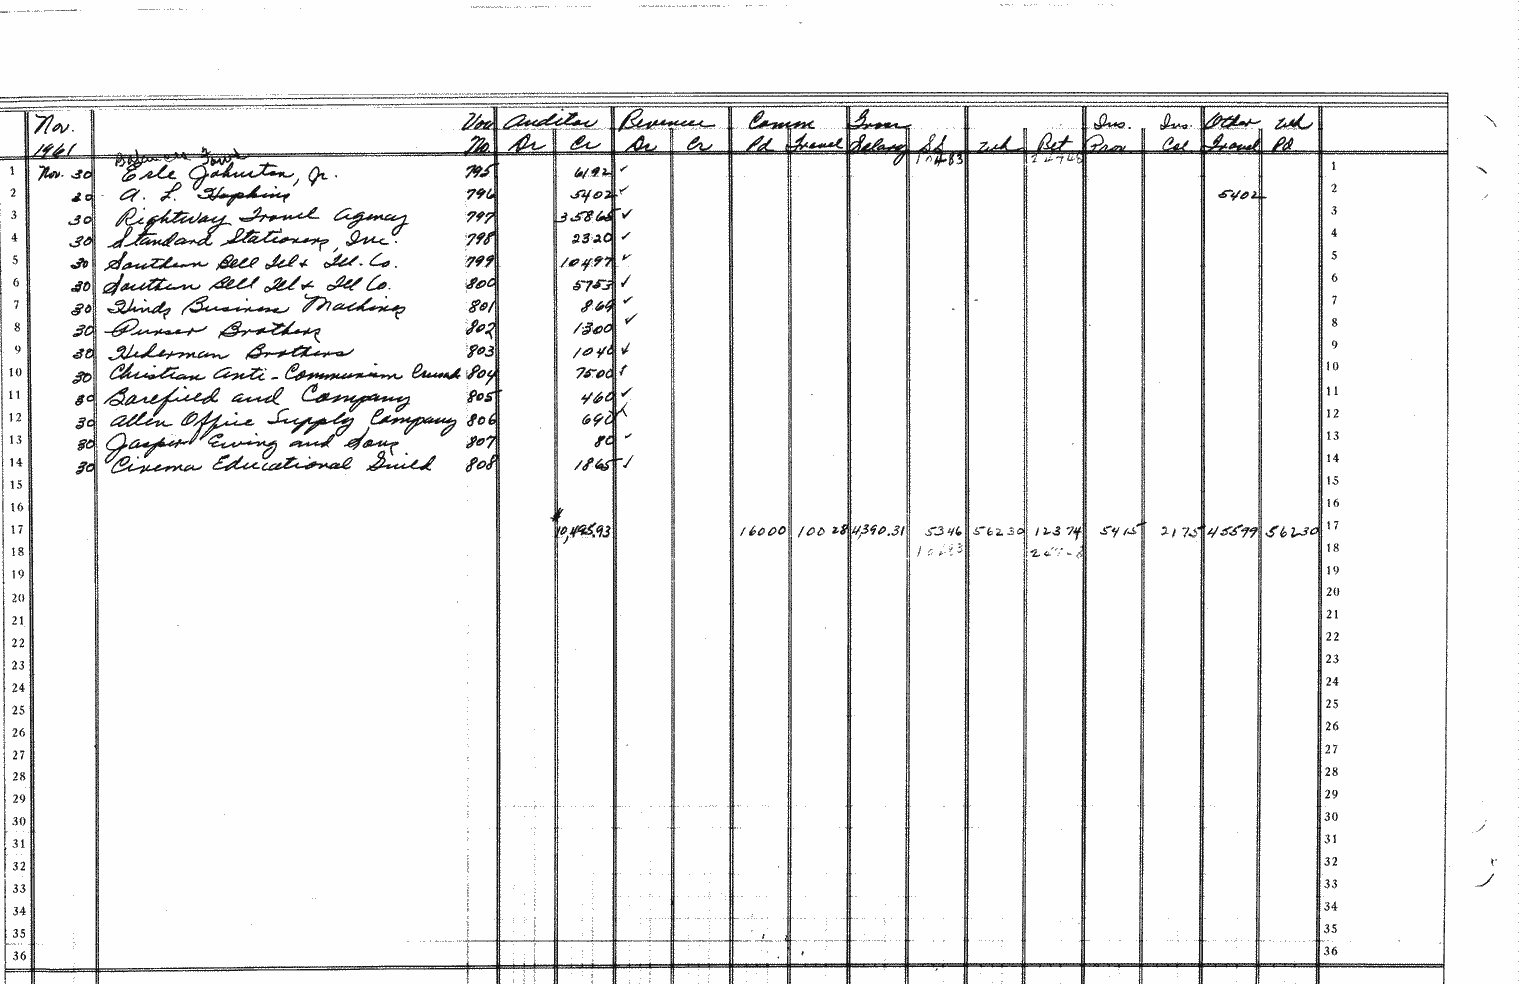 Nov. Vou Auditor Revenue Comm Gross Ins. Ins. Other Wh
1961 No. Dr Cr Dr Cr Pd Travel Salary SS Wh Ret Prov. Col Travel Pd
Balances Forw 10483 24748
1 Nov. 30 Erle Johnston, Jr. 795 6192 ✓ 1
2 30 A. L. Hopkins 796 5402 ✓ 5402 2
3 30 Rightway Travel Agency 797 35865 ✓ 3
4 30 Standard Stationers, Inc. 798 2320 ✓ 4
5 30 Southern Bell Tel & Tel. Co. 799 10497 ✓ 5
6 30 Southern Bell Tel & Tel Co. 800 5753 ✓ 6
7 30 Hinds Business Machines 801 869 ✓ 7
8 30 Purser Brothers 802 1300 ✓ 8
9 30 Hederman Brothers 803 1040 ✓ 9
10 30 Christian Anti-Communism Crusade 804 7500 ✓ 10
11 30 Barefield and Company 805 460 ✓ 11
12 30 Allen Office Supply Company 806 690 ✓ 12
13 30 Jasper Ewing and Sons 807 80 ✓ 13
14 30 Cinema Educational Guild 808 1865 ✓ 14
15 15
16 16
17 $10,495.93 16000 10028 4,390.31 5346 56230 12374 5415 2175 45599 56230 17
18 18
19 19
20 20
21 21
22 22
23 23
24 24
25 25
26 26
27 27
28 28
29 29
30 30
31 31
32 32
33 33
34 34
35 35
36 36